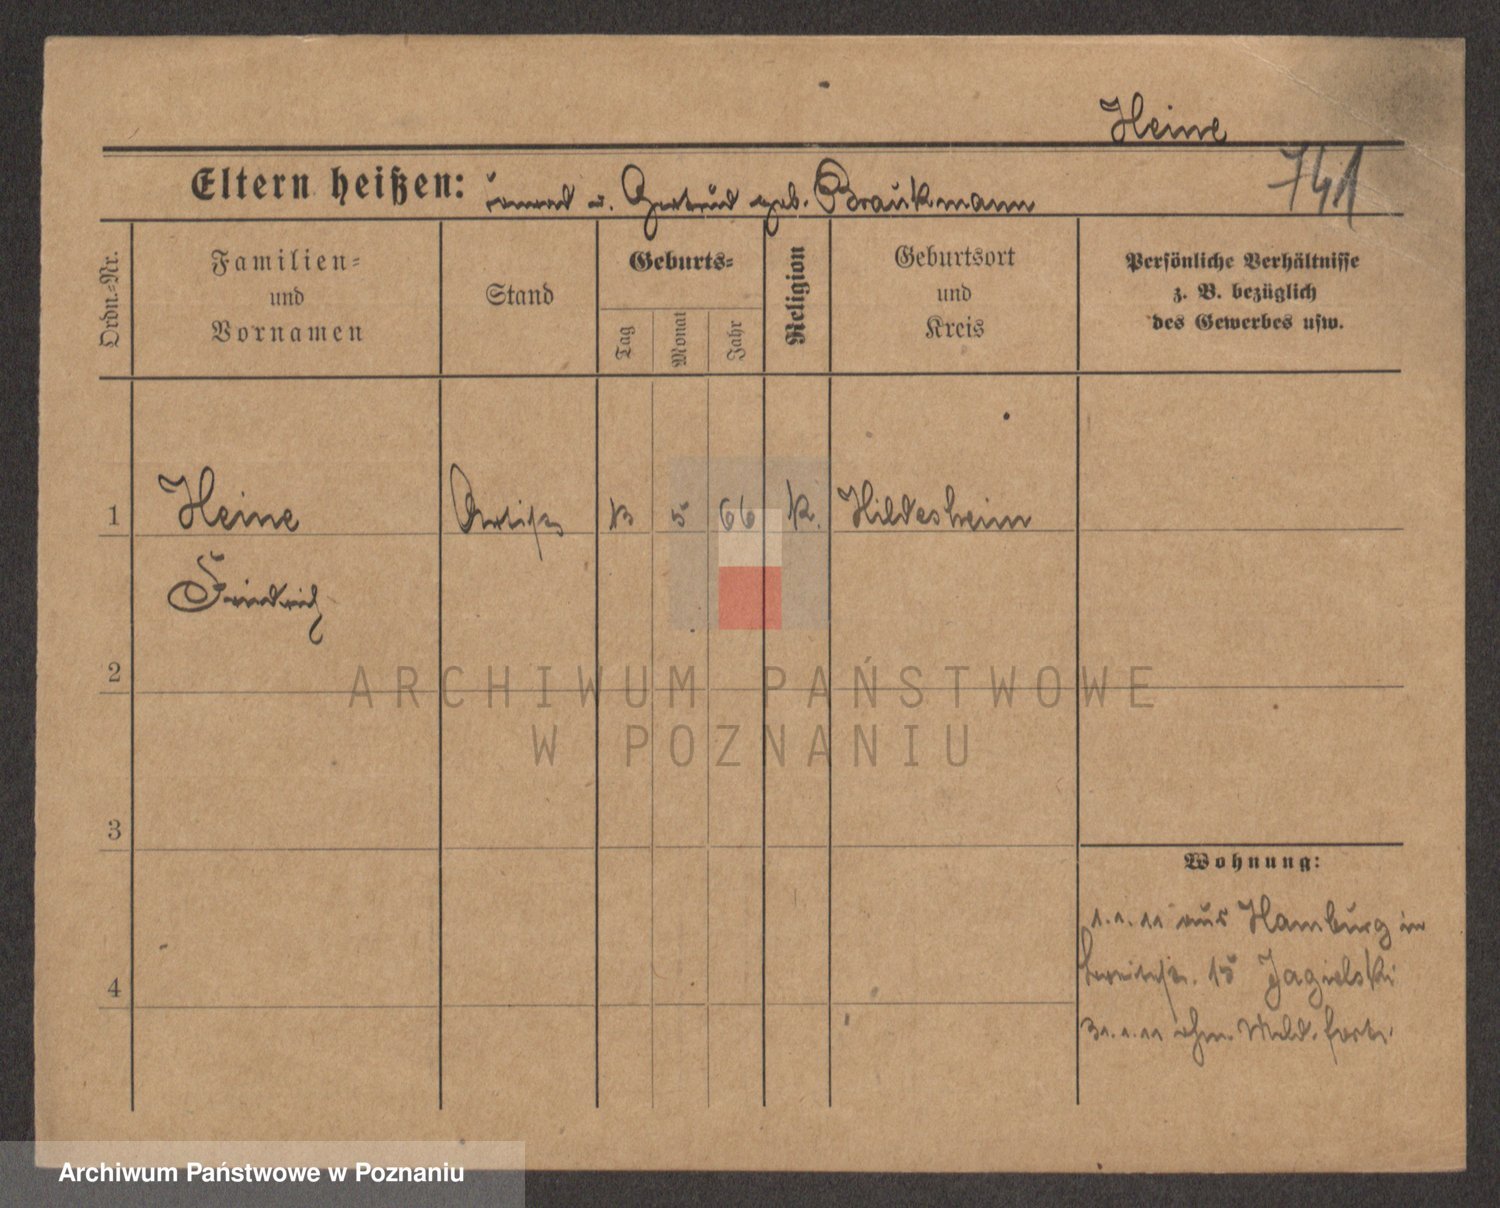 Heine
741
Eltern heißen: Conrad u. Gertrud geb. Braukmann
Ordn.-Nr.
Familien-
und
Vornamen
Stand
Geburts-
Tag
Monat
Jahr
Religion
Geburtsort
und
Kreis
Persönliche Verhältnisse
z. B. bezüglich
des Gewerbes usw.
1 Heine Artist 13 5 66 k. Hildesheim
Friedrich
2
3
4
Wohnung:
1.1.11 aus Hamburg in
15 Jagielski
31.1.11 ohne Meld. fort.
ARCHIWUM PAŃSTWOWE
W POZNANIU
Archiwum Państwowe w Poznaniu